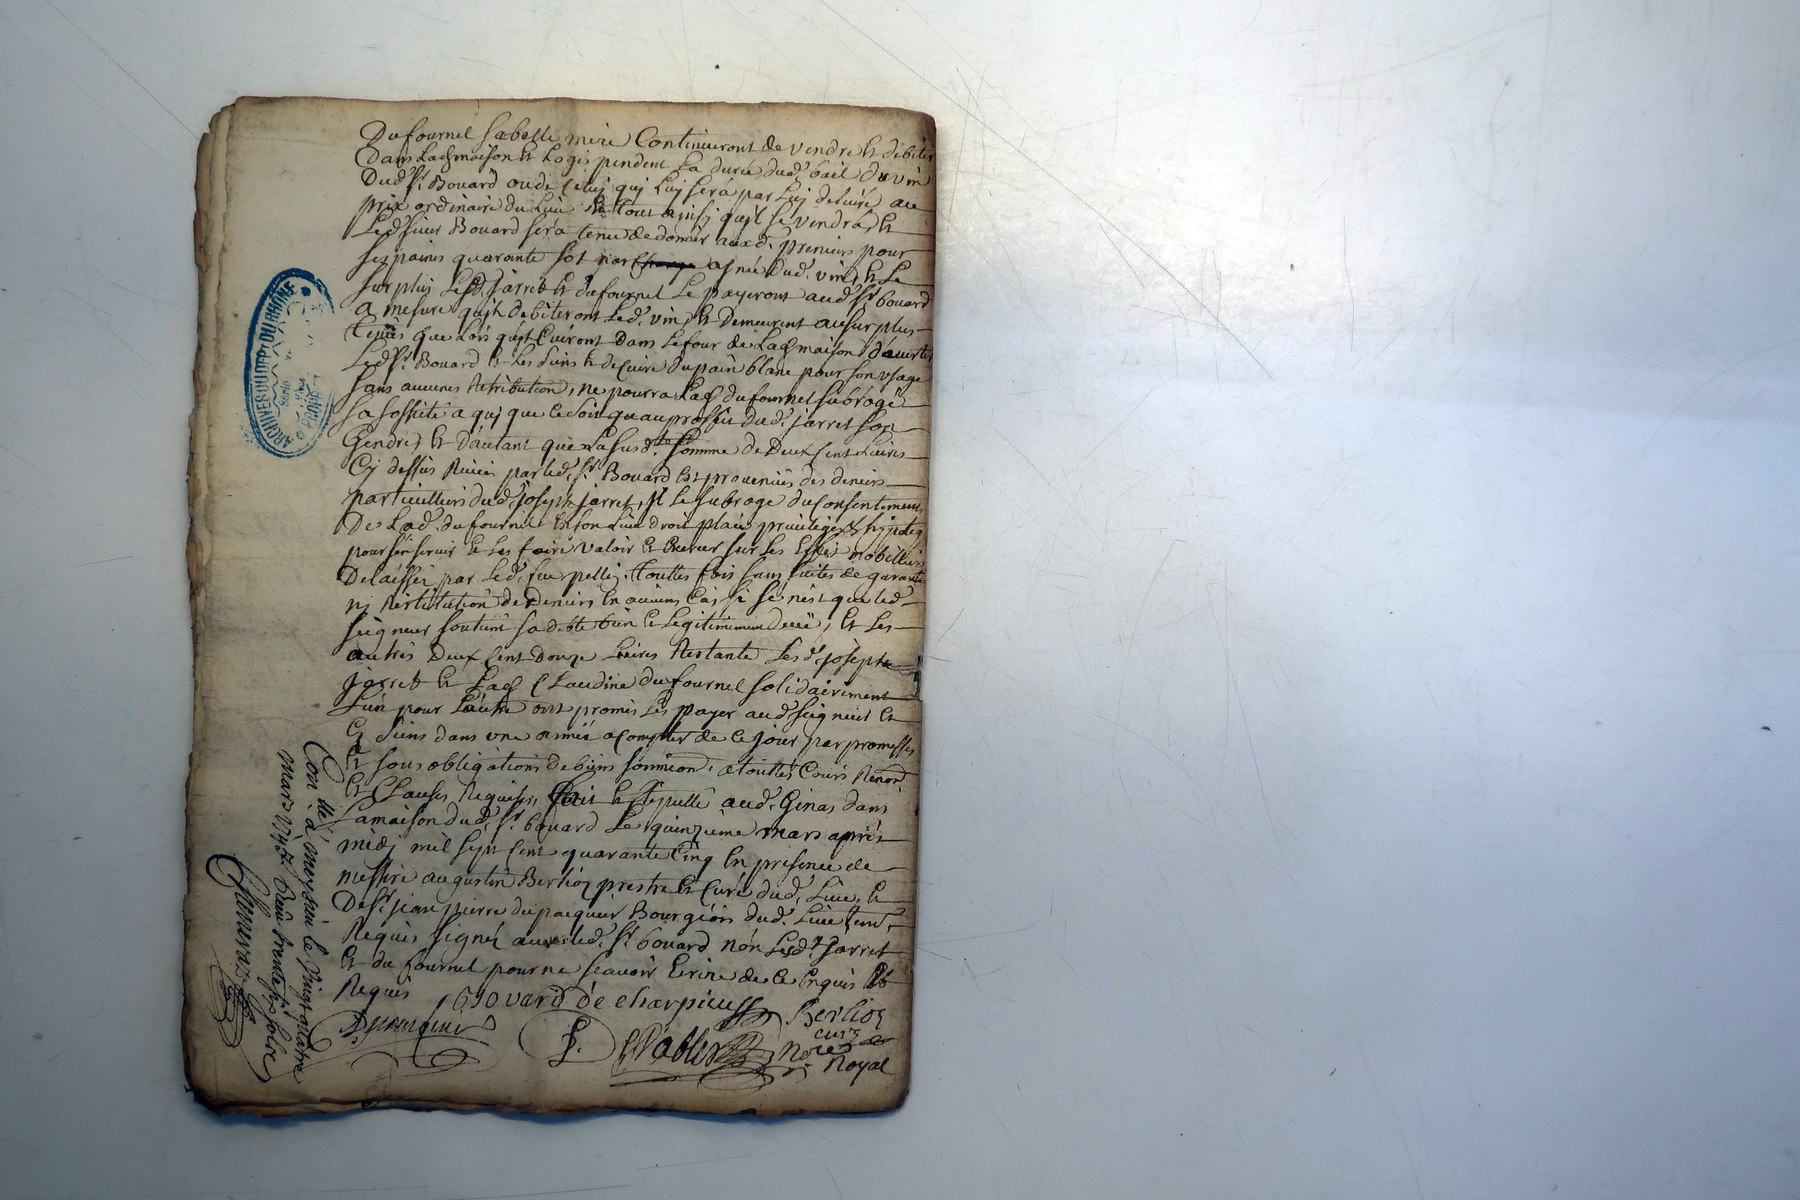 Dufournel sa belle mere Continueront de vendre et debiter
Dans Lad maison et Logis pendent La durée dud. bail du vin
Dud Sr. Bouard ou de Celuj quj Luj sera par Luj deliuré au
prix ordinaire du Lieu et tout ainsj qujl se vendra, et
Led sieur Bouard sera tenu de donner auxd. preneurs pour
ses paines quarante sol par asnée dud. vin, et Le
surplus Lesd. jarret et dufournel Le payeront aud Sr. bouard
a mesure qujls debiteront Led. vin, et Demeurent au surplus
tenus que Lors qujls Cuiront dans Le four de Lad maison d'auertir
Led Sr. Bouard et Les siens et de Cuire du pain blanc pour son vsage
sans aucunes Retribution, ne pourra Lad dufournel subroge
sa sossieté a quj que ce soit quau proffit dud. jarret son
Gendre, et D'autant que La susd. somme de Deux Cent Liures
Cy dessus Receue par led. Sr. Bouard Est prouenue des deniers
particulliers dud. joseph jarret, jl Le subroge du Consentement
De Lad. dufournel En son Lieu droit place priuilege & hypoteq
pour s'en seruir et Les faire valoir et sur Les Effets mobilliers
Delaissez par Led. feu pellj. touttes fois sans suites de garantie
nj Restitution de Deniers En aucuns Cas, si se n'est que led
seigneur soutient sa debte bien et Legitimement deüe, et Les
autres Deux Cent Douze Liures Restante Lesd. joseph
jarret et Lad Claudine dufournel solidairement
L'un pour L'autre ont promis Les payer aud seigneur et
Es siens dans vne année a compter de Ce jour par promesses
et sous obligations de biens a touttes Cours Renon
et Clauses Requises, fait et stipullé aud. Ginas dans
La maison dud. Sr. bouard Le quinzieme mars apres
midj mil sept Cent quarante Cinq En presence de
messire augustin Berlioz prestre et Curé dud. Lieu, et
De Sr. jean pierre dupacquier Bourgeois dud. Lieu
Requis signez auec led. Sr. bouard non Lesd. Jarret
et dufournel pour ne sçavoir Ecrire de ce Enquis et
Requis
Bouard de charpieux
Berlioz
curé
Notre
Royal
Con.lé à meyzieu le vingt quatre
mars 1745 Reçu trente six sols
ARCHIVES DU DEPt DU RHONE